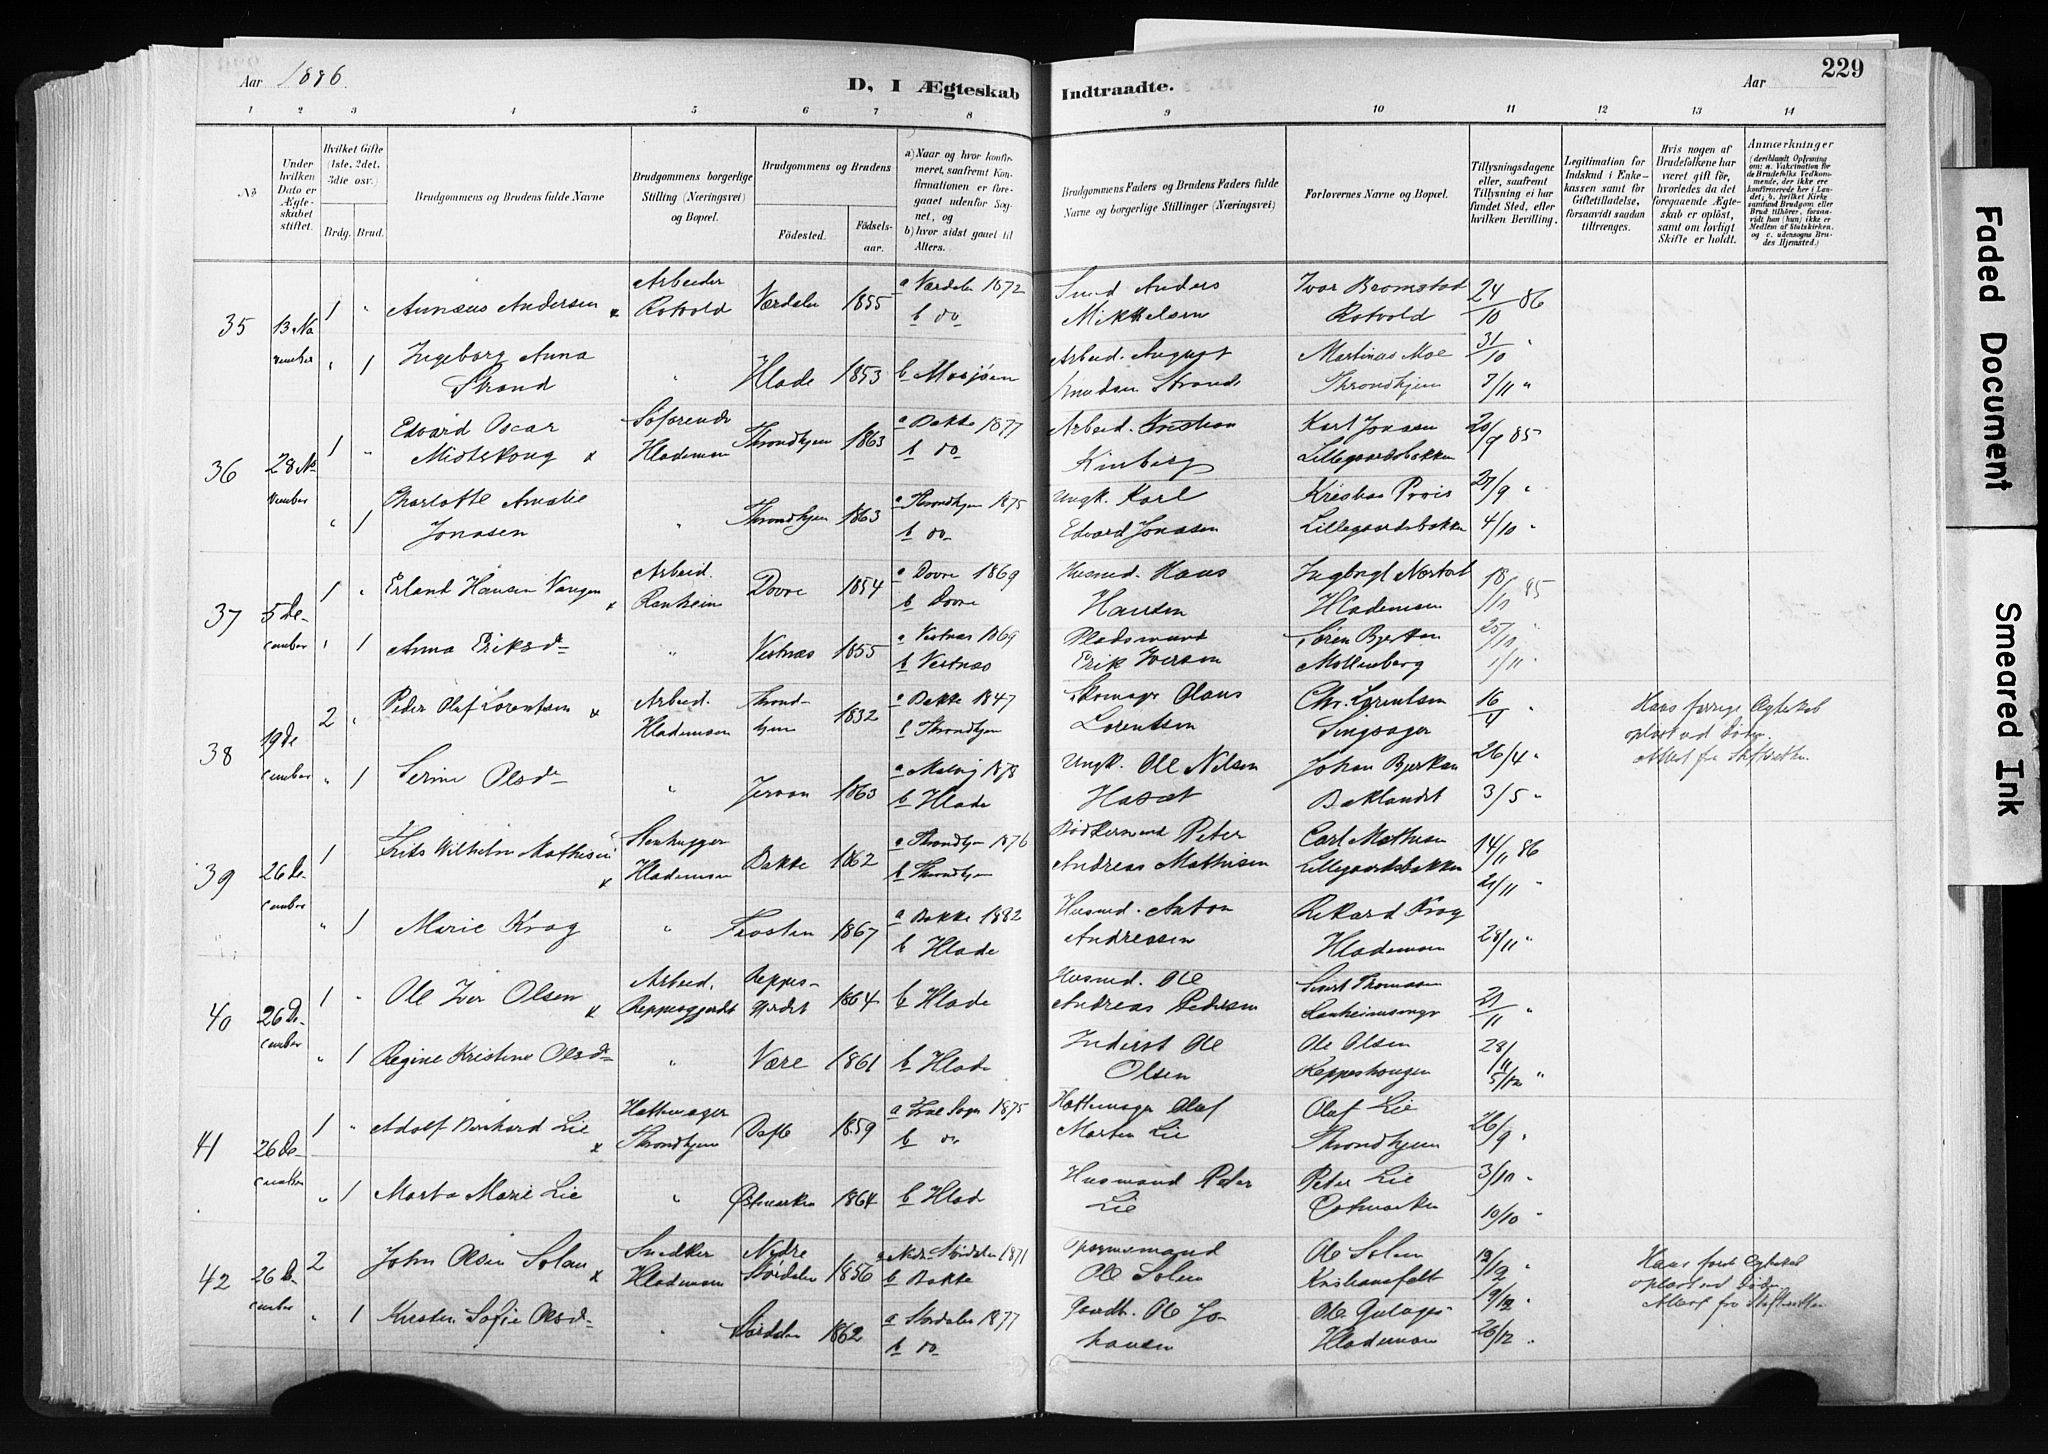 Aar 1886.
D, I Ægteskab Indtraadte.
Aar
229
1 2 3 4 5 6 7 8 9 10 11 12 13 14
No
Under hvilken Dato er Ægteskabet stiftet.
Hvilket Gifte (1ste, 2det, 3die osv.)
Brdg. Brud.
Brudgommens og Brudens fulde Navne
Brudgommens borgerlige Stilling (Næringsvei) og Bopæl.
Brudgommens og Brudens
Fødested. Fødselsaar.
a) Naar og hvor konfirmeret, saafremt Konfirmationen er foregaaet udenfor Sognet, og
b) hvor sidst gaaet til Alters.
Brudgommens Faders og Brudens Faders fulde Navne og borgerlige Stillinger (Næringsvei)
Forlovernes Navne og Bopæl.
Tillysningsdagene eller, saafremt Tillysning ei har fundet Sted, efter hvilken Bevilling.
Legitimation for Indskud i Enkekassen samt for Giftetilladelse, forsaavidt saadan tiltrænges.
Hvis nogen af Brudefolkene har været gift før, hvorledes da det foregaaende Ægteskab er opløst, samt om lovligt Skifte er holdt.
Anmærkninger
(deriblandt Oplysning om: a. Vakcination for de Brudefolks Vedkommende, der ikke ere konfirmerede her i Landet; b. hvilket Kirkesamfund Brudgom eller Brud tilhører, forsaavidt han (hun) ikke er Medlem af Statskirken, og c. udensogns Brudes Hjemsted.)
35 13 November 1 " Annæus Andersen x Arbeider Rotvold Værdalen 1855 a Værdalen 1872 b do Smed Anders Mikkelsen Ivar Bromstad Rotvold 24/10 86
" 1 Ingeborg Anna Strand " Hlade 1853 b Mosjøen Arbeid. August Knudsen Strand Martinus Moe Throndhjem 31/10 " 7/11 "
36 28 November 1 " Edvard Oscar Midtskoug x Søfarende Hlademoen Throndhjem 1863 a Bakke 1877 b do Arbeid. Kristian Kinberg Karl Jonasen Lillegaardsbakken 20/9 85
" 1 Charlotte Amalie Jonasen " Throndhjem 1863 a Throndhjem 1875 b do Ungk. Karl Edvard Jonasen Lillegaardsbakken 27/9 " 4/10
37 5 December 1 " Erland Hansen Vangen x Arbeid. Ranheim Dovre 1854 a Dovre 1869 b Dovre Husmd. Hans Hansen Hlademoen 18/10 85
" 1 Anna Eriksd. " Vestnæs 1855 a Vestnæs 1869 b Vestnæs Pladsmand Erik Iversen Søren Møllenberg 25/10 " 1/11 "
38 19 December 2 " Peder Olaf Lorentsen x Arbeid. Hlademoen Throndhjem 1832 a Bakke 1847 b Throndhjem Skomager Olaus Lorentsen Chr. Lorentsen Singsager 16/4 " Hans forrige Ægteskab opløst ved Døden. Attest fra Skifteretten.
" 1 Serine Olsd. " Jervan 1863 a Malvig 1878 b Hlade Ungk. Ole Nilsen Johan Bjerkan Baklandet 26/4 " 3/5 "
39 26 December 1 Frits Wilhelm Mathisen x Stenhugger Hlademoen Bakke 1862 a Throndhjem 1876 b Throndhjem Bødkersvend Peter Andreas Mathisen Carl Mathisen Lillegaardsbakken 14/11 86 21/11 "
" 1 Marie Krog " Frosten 1867 a Bakke 1882 b Hlade Husmd. Anton Andreasen Rikard Krog Hlademoen 28/11 "
40 26 December 1 " Ole Iver Olsen x Arbeid. Reppesgjerdet Reppesgjerdet 1864 b Hlade Husmd. Ole Andreas Pedersen Thomasen 21/11 "
" 1 Regine Kristine Olsd. " Være 1861 b Hlade Inderst Ole Olsen Ole Olsen Reppeshaugen 28/11 5/12 "
41 26 December 1 " Adolf Bernhard Lie x Hattemager Throndhjem 1859 1875 b do Hattemager Olaf Martin Lie Olaf Lie Throndhjem 26/9 "
" 1 Marta Marie Lie " Østmarken 1864 b Hlade Husmand Peter Lie Peter Lie Østmarken 3/10 " 10/10 "
42 26 December 2 John Olsen Solem x Snedker Hlademoen Nedre Stördalen 1856 a Nedre Stördalen 1871 b Bakke Opsynsmand Ole Solem Ole Solem Kristiansfeldt 12/12 " Hans forr. Ægteskab opløst ved Døden Attest fra Skifteretten
" 1 Kirsten Sofie Olsd. " Stördalen 1862 a Stördalen 1877 b do Gaardb. Ole Johansen Ole Hlademoen 19/12 " 26/12 "
Faded Document
Smeared Ink